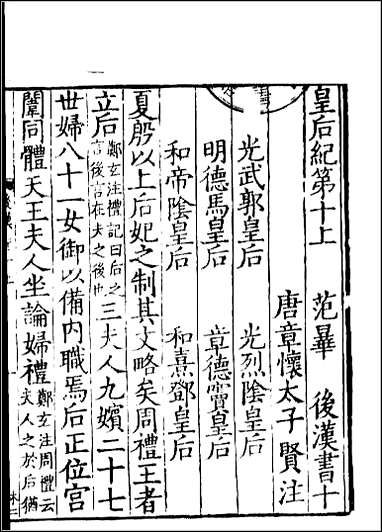 皇后紀第十上 范曄 後漢書十
唐章懷太子賢注
光武郭皇后 光烈陰皇后
明德馬皇后 章德竇皇后
和帝陰皇后 和熹鄧皇后
夏殷以上后妃之制其文略矣周禮王者
立后鄭玄注禮記曰后之言後言在夫之後也三夫人九嬪二十七
世婦八十一女御以備内職焉后正位宮
闈同體天王夫人坐論婦禮鄭玄注周禮云夫人之於后猶